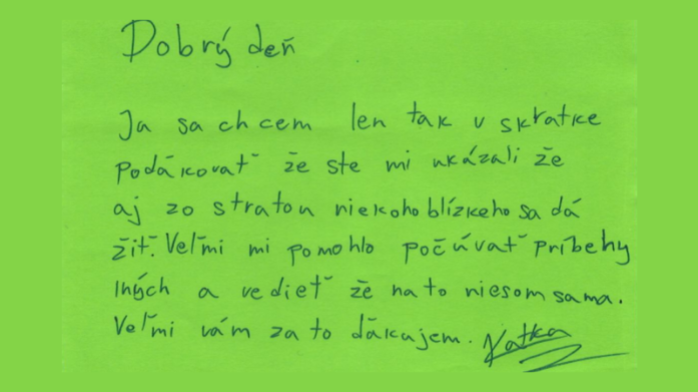 Dobrý deň
Ja sa chcem len tak v skratke
podákovať že ste mi ukázali že
aj zo stratou niekoho blízkeho sa dá
žiť. Veľmi mi pomohlo počúvať príbehy
iných a vedieť že na to niesom sama.
Veľmi vám za to ďakujem. Katka